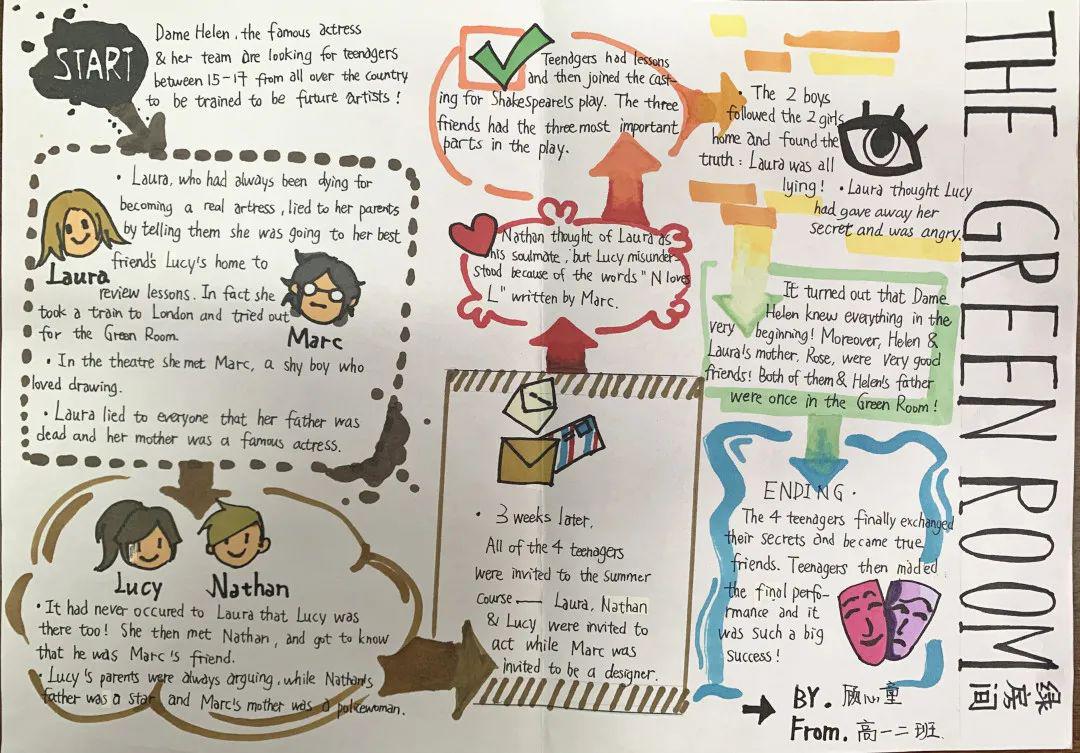 START
Dame Helen, the famous actress
& her team are looking for teenagers
between 15-17 from all over the country
to be trained to be future artists!
• Laura, who had always been dying for
becoming a real artress, lied to her parents
by telling them she was going to her best
friend's Lucy's home to
review lessons. In fact she
took a train to London and tried out
for the Green Room.
Laura
Marc
• In the theatre she met Marc, a shy boy who
loved drawing.
• Laura lied to everyone that her father was
dead and her mother was a famous actress.
Lucy
Nathan
• It had never occured to Laura that Lucy was
there too! She then met Nathan, and got to know
that he was Marc's friend.
• Lucy's parents were always arguing, while Nathan's
father was a star and Marc's mother was a policewoman.
• 3 weeks later,
All of the 4 teenagers
were invited to the Summer
course — Laura, Nathan
& Lucy were invited to
act while Marc was
invited to be a designer.
Nathan thought of Laura as
his soulmate, but Lucy misunder-
stood because of the words "N loves
L" written by Marc.
Teenagers had lessons
and then joined the cast-
ing for Shakespeare's play. The three
friends had the three most important
parts in the play.
• The 2 boys
followed the 2 girls
home and found the
truth: Laura was all
lying!
• Laura thought Lucy
had gave away her
secret and was angry.
It turned out that Dame
Helen knew everything in the
very beginning! Moreover, Helen &
Laura's mother, Rose, were very good
friends! Both of them & Helen's father
were once in the Green Room!
ENDING.
The 4 teenagers finally exchanged
their secrets and became true
friends. Teenagers then maded
the final perfo-
rmance and it
was such a big
success!
BY. 顾心童
From. 高一二班
THE GREEN ROOM
绿房间